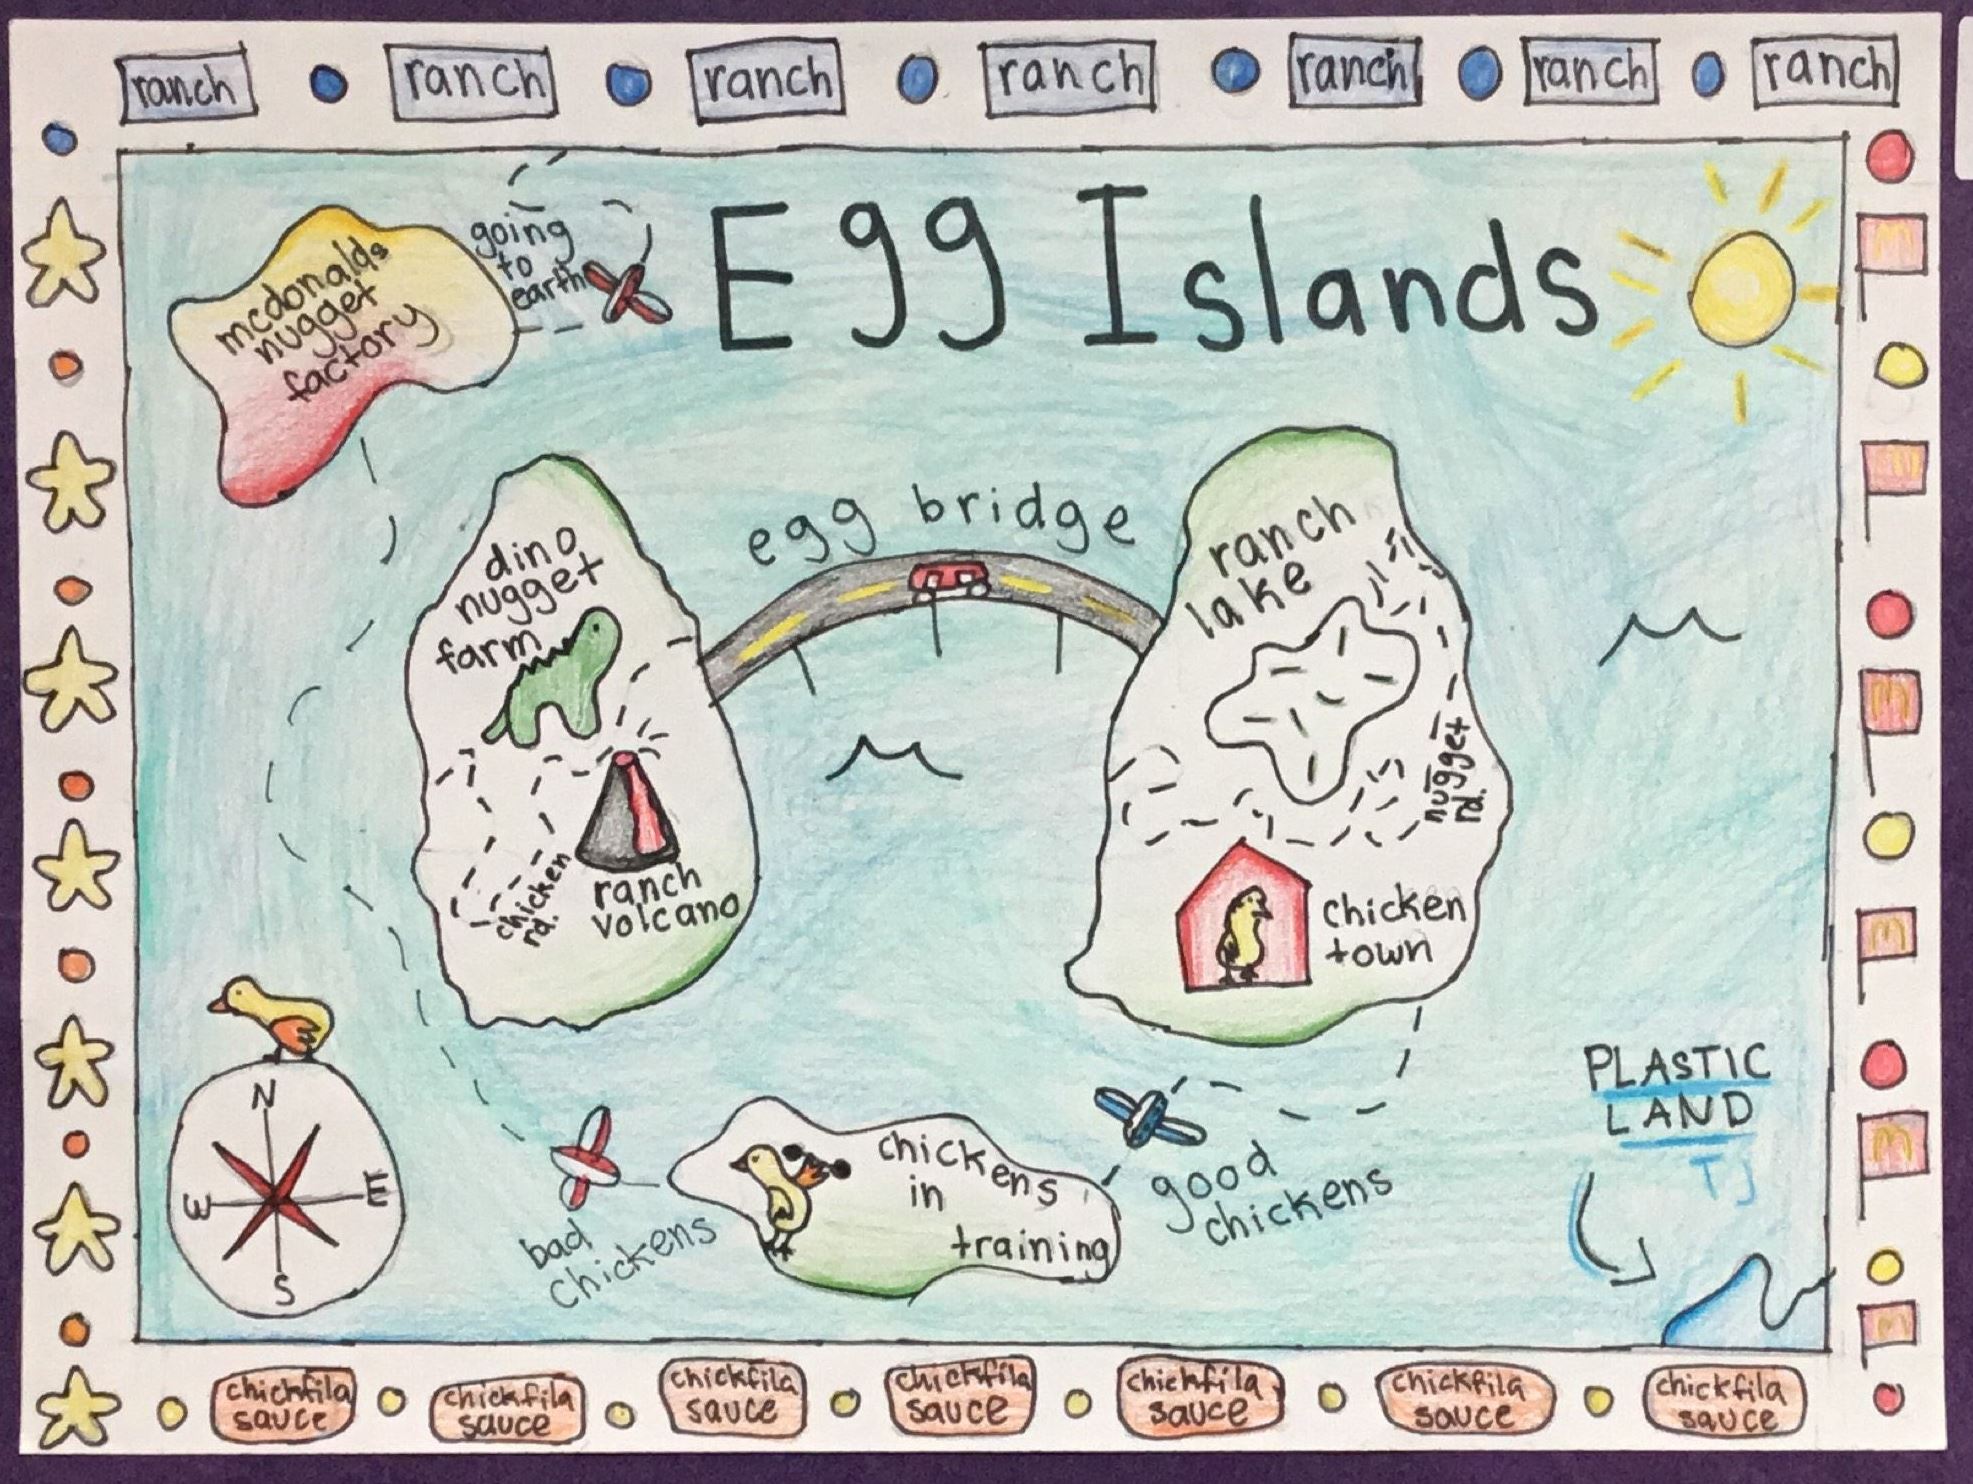 ranch
ranch
ranch
ranch
ranch
ranch
ranch
Egg Islands
going
to
earth
mcdonalds
nugget
factory
egg bridge
dino
nugget
farm
ranch
lake
nugget
rd.
chicken
rd.
ranch
volcano
chicken
town
PLASTIC
LAND
TJ
N
W
E
S
bad
chickens
chickens
in
training
good
chickens
M
M
M
M
M
M
chickfila
sauce
chickfila
sauce
chickfila
sauce
chickfila
sauce
chickfila
sauce
chickfila
sauce
chickfila
sauce